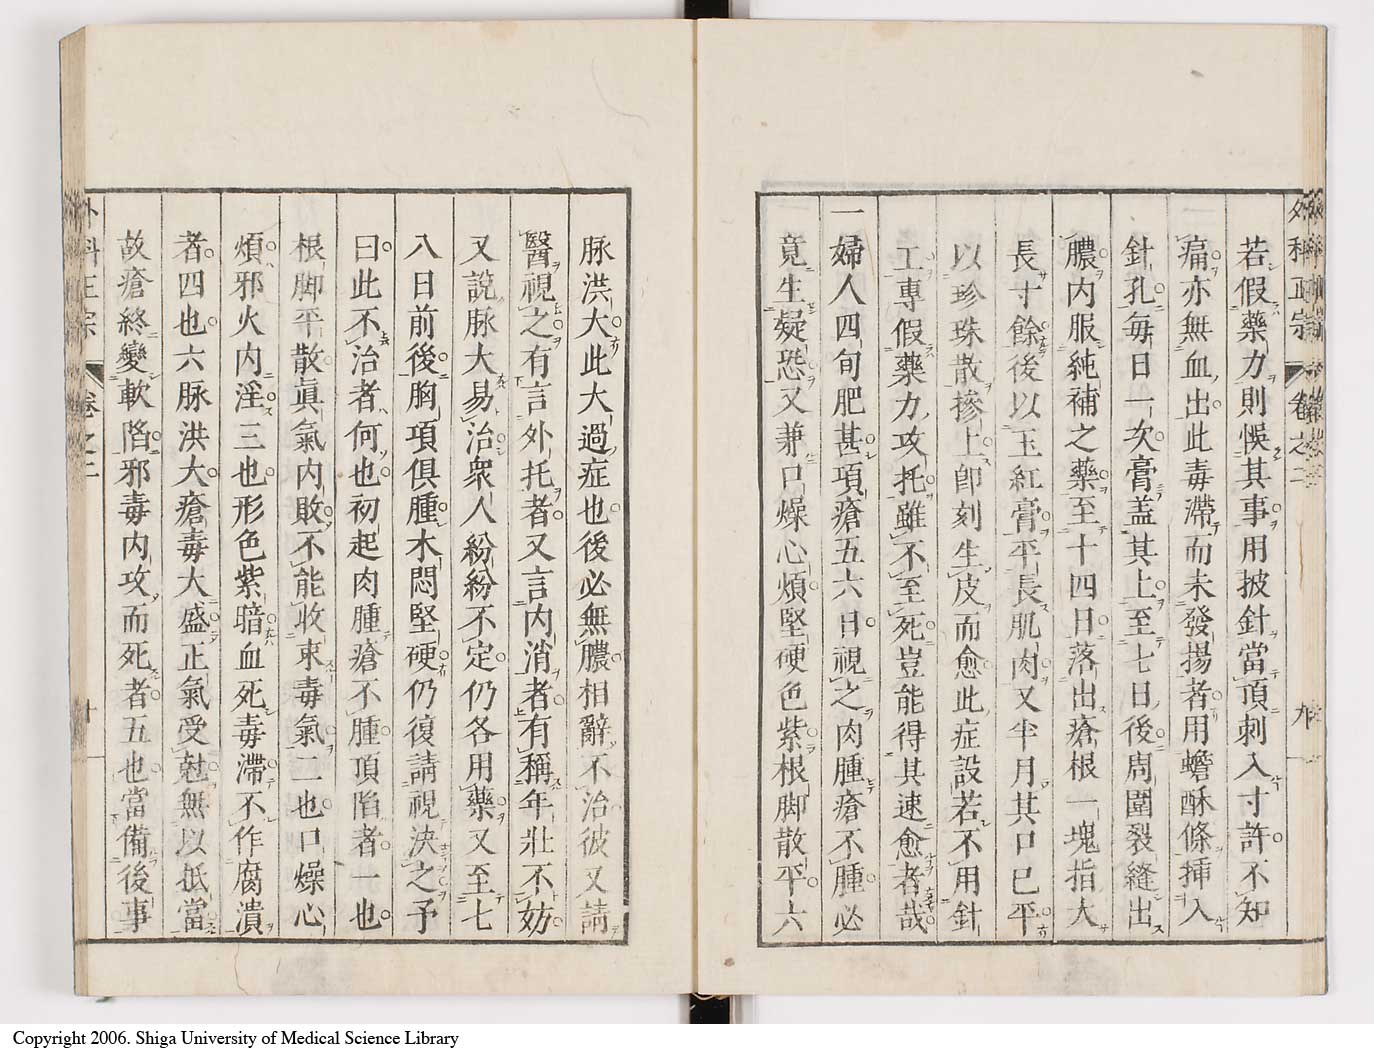 外科正宗 卷之二 九
若假藥力則悞其事用披針當頂刺入寸許不知
痛亦無血出此毒滯而未發揚者用蟾酥條挿入
針孔每日一次膏盖其上至七日後周圍裂縫出
膿內服純補之藥至十四日落出瘡根一塊指大
長寸餘後以玉紅膏平長肌肉又半月其口已平
以珍珠散摻上卽刻生皮而愈此症設若不用針
工專假藥力攻托雖不至死豈能得其速愈者哉
一婦人四旬肥甚項瘡五六日視之肉腫瘡不腫必
竟生疑恐又兼口燥心煩堅硬色紫根脚散平六
脉洪大此大過症也後必無膿相辭不治彼又請
醫視之有言外托者又言內消者有稱年壯不妨
又說脉大易治衆人紛紛不定仍各用藥又至七
八日前後胸項俱腫木悶堅硬仍復請視決之予
曰此不治者何也初起肉腫瘡不腫頂陷者一也
根脚平散眞氣內敗不能收束毒氣二也口燥心
煩邪火內淫三也形色紫暗血死毒滯不作腐潰
者四也六脉洪大瘡毒大盛正氣受尅無以抵當
故瘡終變軟陷邪毒內攻而死者五也當備後事
外科正宗 卷之二 十
Copyright 2006. Shiga University of Medical Science Library